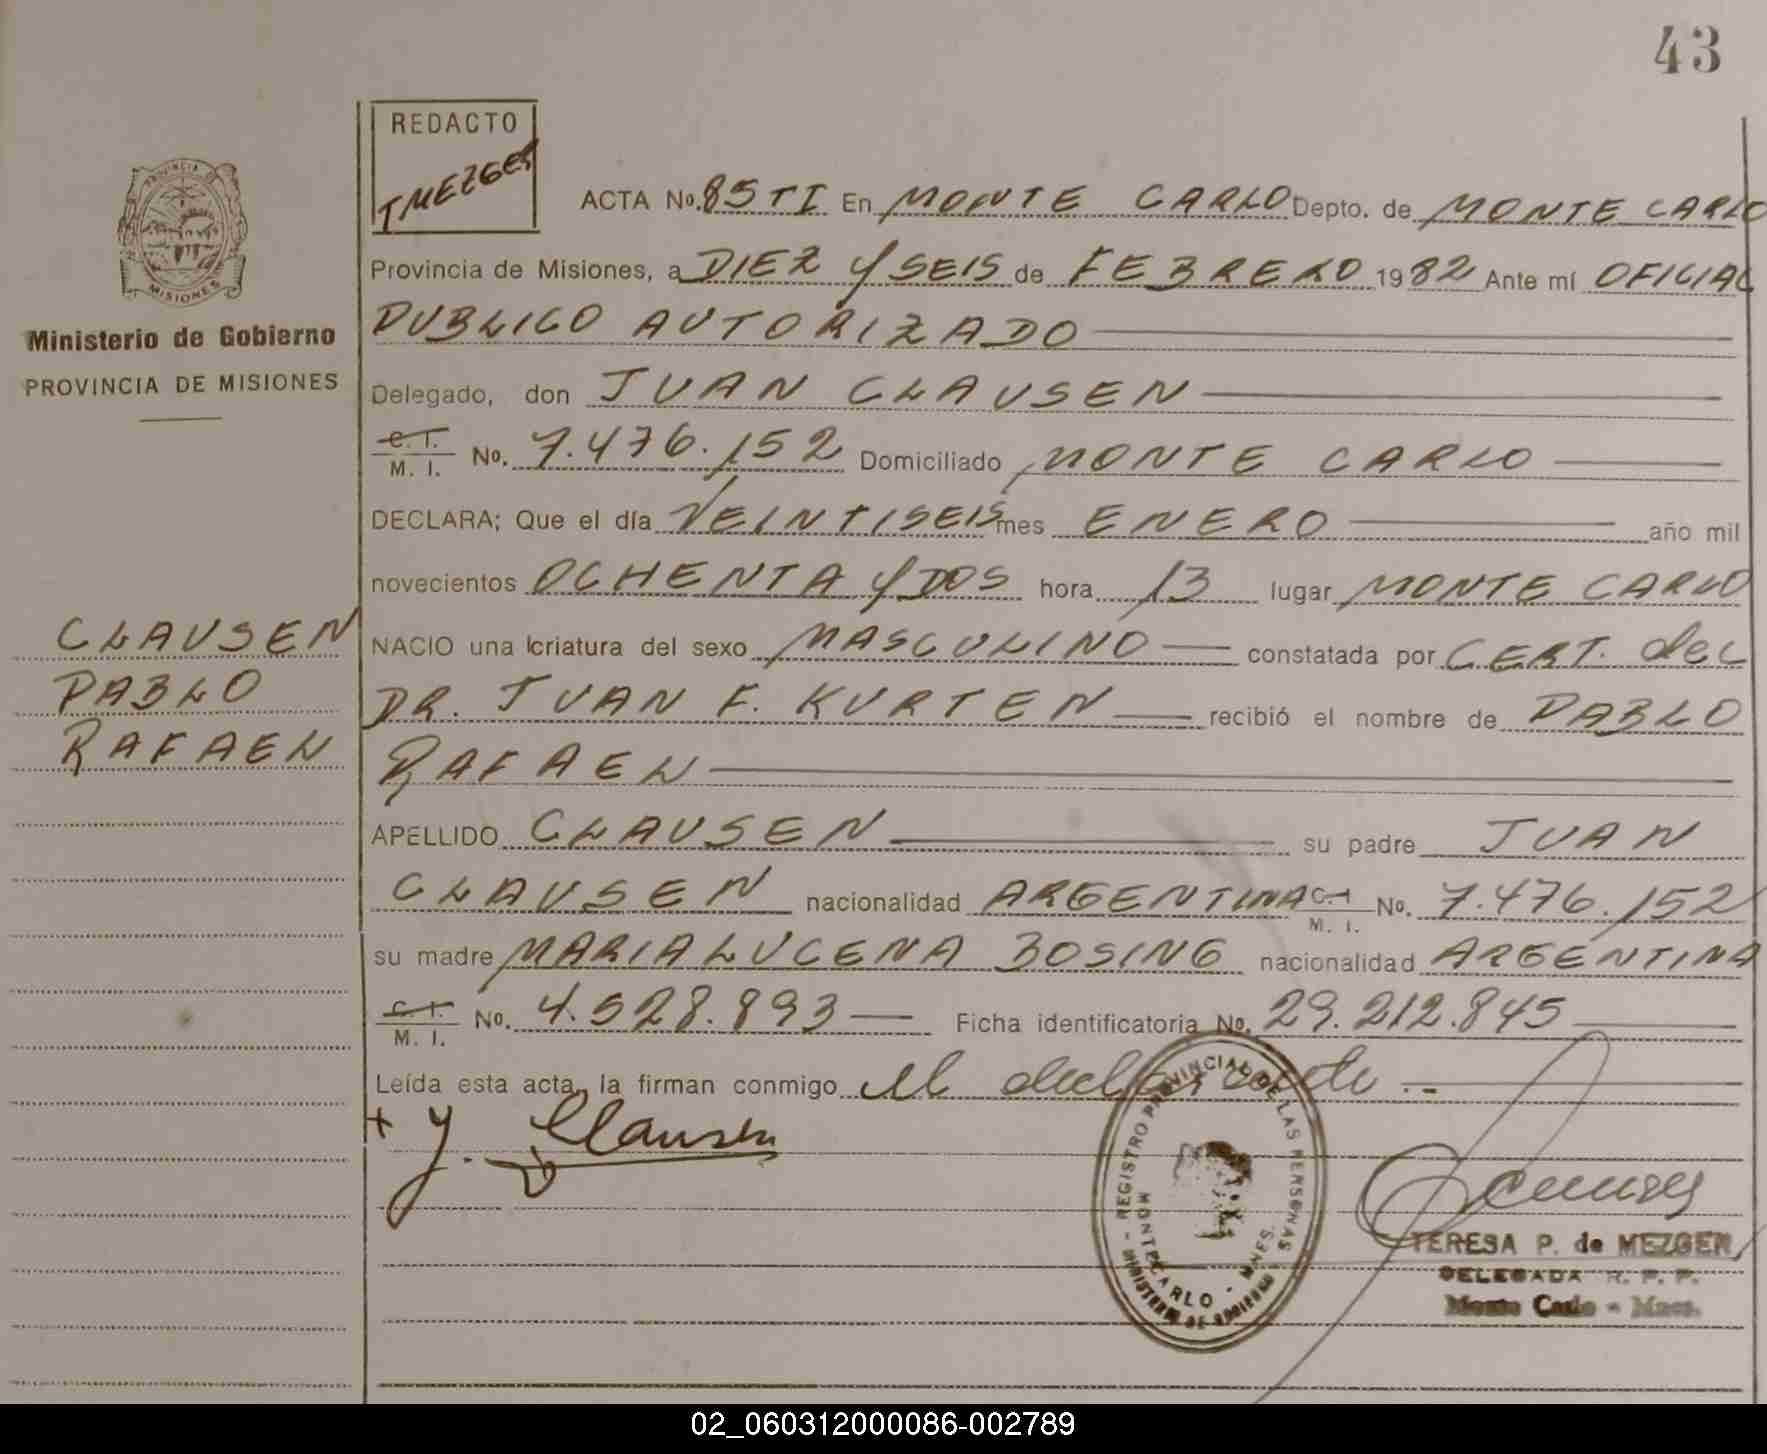 43
REDACTO
T MEZGER
PROVINCIA DE
MISIONES
Ministerio de Gobierno
PROVINCIA DE MISIONES
ACTA No. 85 TI En MONTE CARLO Depto. de MONTE CARLO
Provincia de Misiones, a DIEZ Y SEIS de FEBRERO 1982 Ante mí OFICIAL
PUBLICO AUTORIZADO
Delegado, don JUAN CLAUSEN
C. I.
M. I. No. 7.476.152 Domiciliado MONTE CARLO
DECLARA; Que el día VEINTISEIS mes ENERO año mil
novecientos OCHENTA Y DOS hora 13 lugar MONTE CARLO
CLAUSEN
PABLO
RAFAEL
NACIO una criatura del sexo MASCULINO constatada por CERT. del
DR. JUAN F. KURTEN recibió el nombre de PABLO
RAFAEL
APELLIDO CLAUSEN su padre JUAN
CLAUSEN nacionalidad ARGENTINA C.I. M. I. No. 7.476.152
su madre MARIA LUCENA BOSING nacionalidad ARGENTINA
C. I.
M. I. No. 4.528.893 Ficha identificatoria No. 29.212.845
Leída esta acta, la firman conmigo el declarante . -
+ J. Clausen
REGISTRO PROVINCIAL DE LAS PERSONAS
MONTECARLO - MNES.
MINISTERIO DE GOBIERNO
TERESA P. de MEZGER
DELEGADA R. P. P.
Monte Carlo - Mnes.
02_060312000086-002789